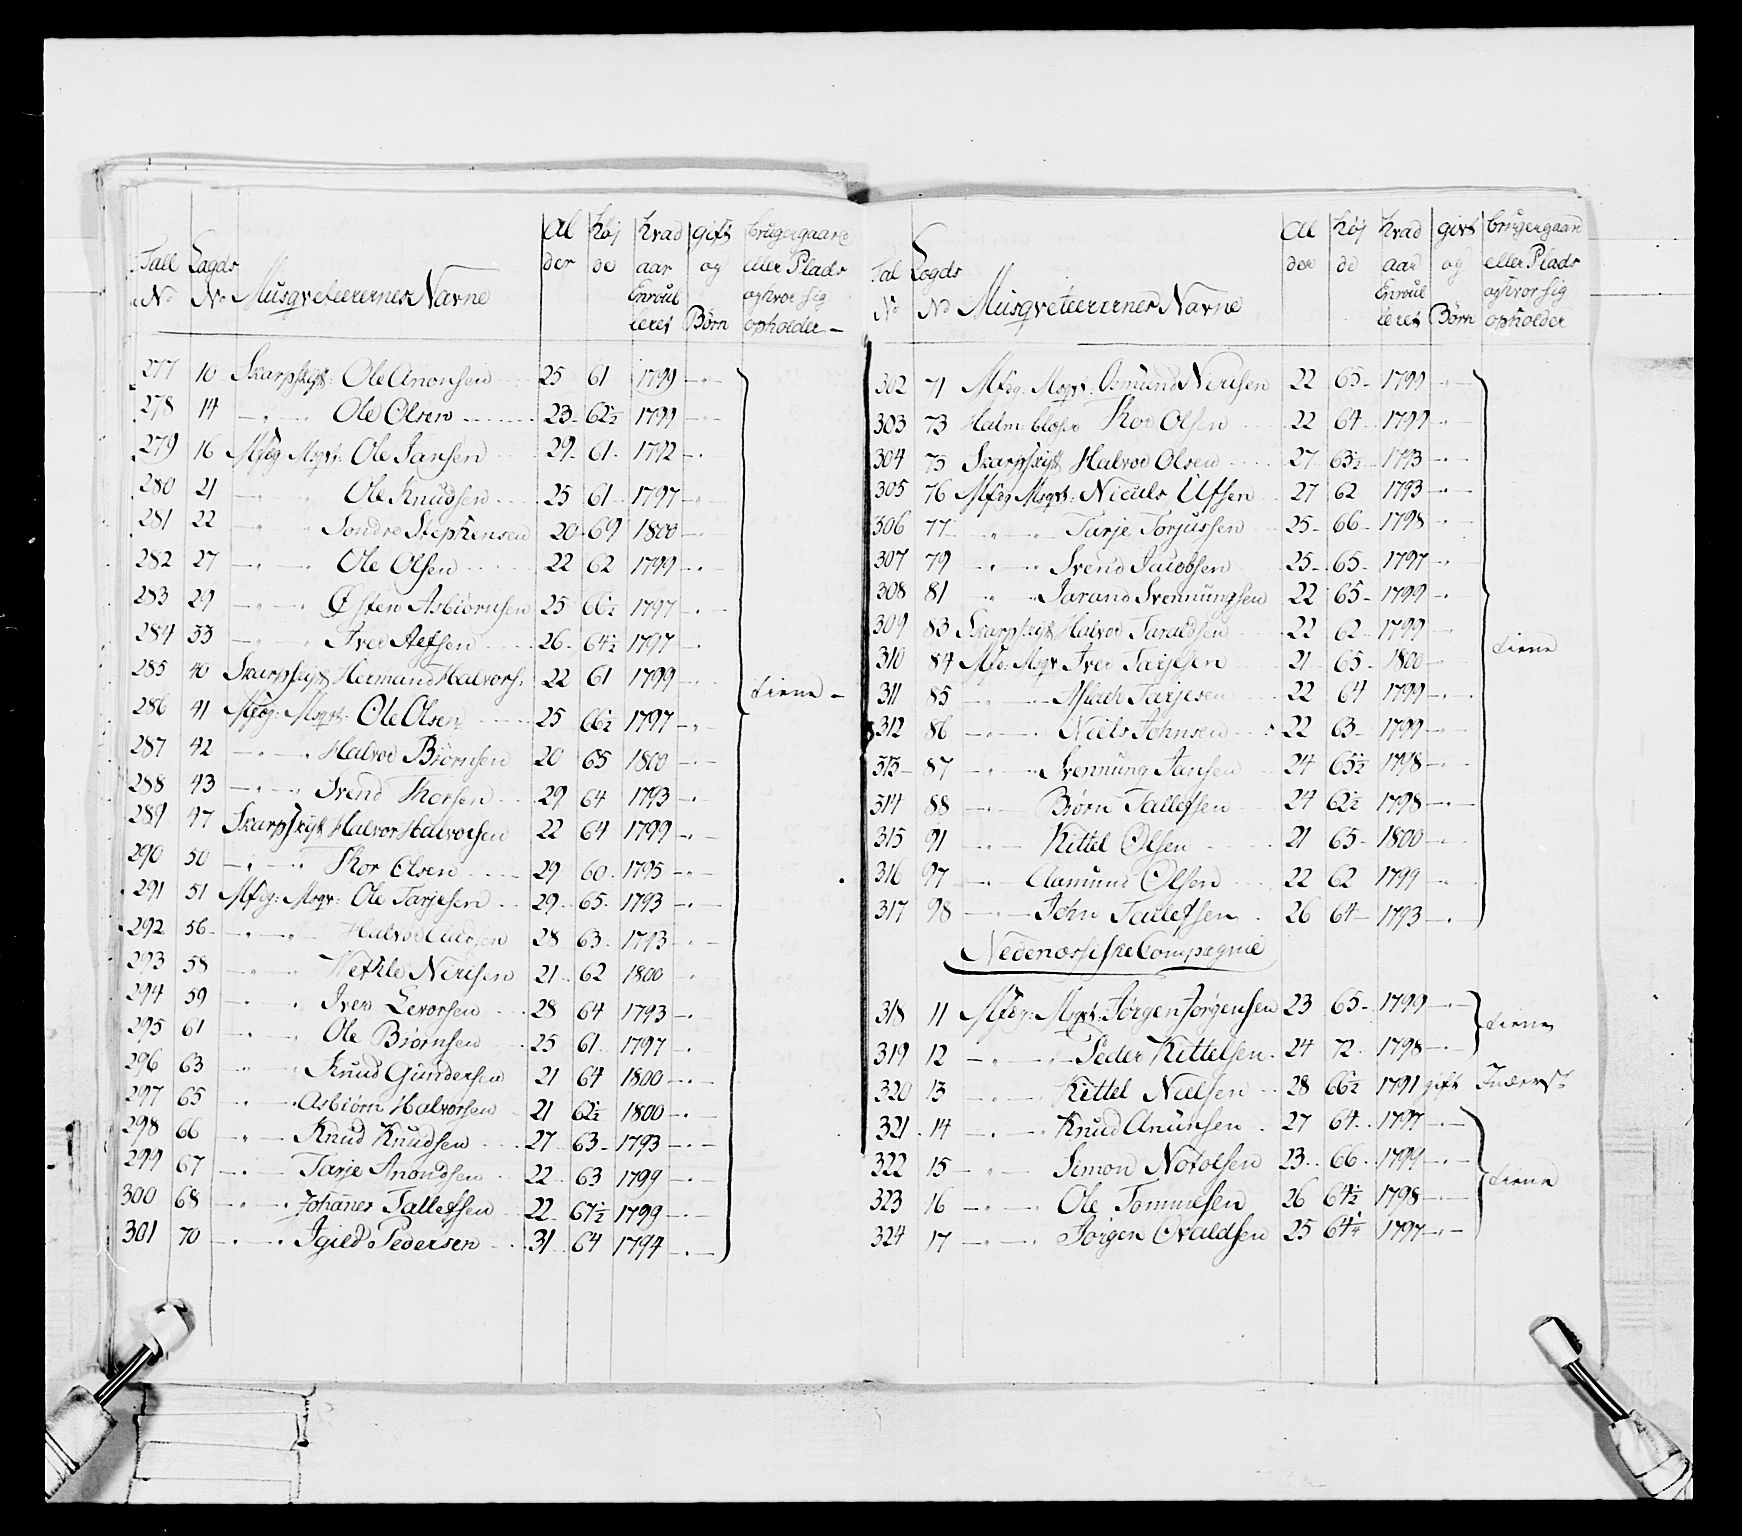 Tall No | Lagds No | Musqveteerernes Navne | Al der | Høj de | hvad aar Enroul leret | gift og Børn | brugergaard eller Plads og hvor sig opholder
277 10 Skarpskyt: Ole Anonsen 25 61 1799
278 14 — " — Ole Olsen 23 62½ 1799
279 16 Mfdg Msqvt: Ole Jansen 29 61 1792
280 21 — " — Ole Knudsen 25 61 1797
281 22 — " — Sondre Stephensen 20 69 1800
282 27 — " — Ole Olsen 22 62 1799
283 29 — " — Østen Asbiørnsen 25 66½ 1797
284 33 — " — Iver Aefsen 26 64½ 1797
285 40 Skarpskyt Hermand Halvors. 22 61 1799 tiene
286 41 Mfdg: Msqvt: Ole Olsen 25 66½ 1797
287 42 — " — Halvor Biørnsen 20 65 1800
288 43 — " — Svend Thorsen 29 64 1793
289 47 Skarpskyt Halvor Halvorsen 22 64 1799
290 50 — " — Thor Olsen 29 60 1795
291 51 Mfdg: Msqv: Ole Tarjesen 29 65 1793
292 56 — " — Halvor 28 63 1793
293 58 — " — Nirisen 21 62 1800
294 59 — " — Iver Levorsen 28 64 1793
295 61 — " — Ole Biørnsen 25 61 1797
296 63 — " — Knud Gundersen 21 64 1800
297 65 — " — Asbiørn Halvorsen 21 62½ 1800
298 66 — " — Knud Knudsen 27 63 1793
299 67 — " — Tarje Anondsen 22 63 1799
300 68 — " — Johanes Tallefsen 22 67½ 1799
301 70 — " — Igild Pedersen 31 64 1794
Tal No | Logds No | Musqveteerernes Navne | Al der | Høj de | hvad aar Enroul leret | givt og Børn | brugergaard eller Plads og hvor sig opholder
302 71 Mfdg. Msqvt. Osmund Nirisen 22 65 1799
303 73 Halm: blæser Thor Olsen 22 64 1799
304 75 Skarpskyt Halvor Olsen 27 63½ 1793
305 76 Mfdg Msqvt: Niculs Ufsen 27 62 1793
306 77 — " — Tarje Torjussen 25 66 1798
307 79 — " — Svend Jacobsen 25 65 1797
308 81 — " — Jarand Svennungsen 22 65 1799
309 83 Skarpskyt Halvor Taraldsen 22 62 1799
310 84 Mfd: Msqv Iver Tarjesen 21 65 1800 tiene
311 85 — " — Tarjesen 22 64 1799
312 86 — " — Niels Johnsen 22 63 1799
313 87 — " — Svennung Jansen 24 65½ 1798
314 88 — " — Biørn Tallefsen 24 62½ 1798
315 91 — " — Kittel Olsen 21 65 1800
316 97 — " — Aamund Olsen 22 62 1799
317 98 — " — John Tallefsen 26 64 1793
Nedenæsiske Compagnie
318 11 Mfdg: Msqvt: Jørgen Jørgensen 23 65 1799 tiene
319 12 — " — Peder Kittelsen 24 72 1798
320 13 — " — Kittel Nielsen 28 66½ 1791 gift Inderst
321 14 — " — Knud Anunsen 27 64 1797
322 15 — " — Simon 23 66 1799 tiene
323 16 — " — Ole Tommesen 26 64½ 1798
324 17 — " — Jørgen Ovaldsen 25 64¼ 1797